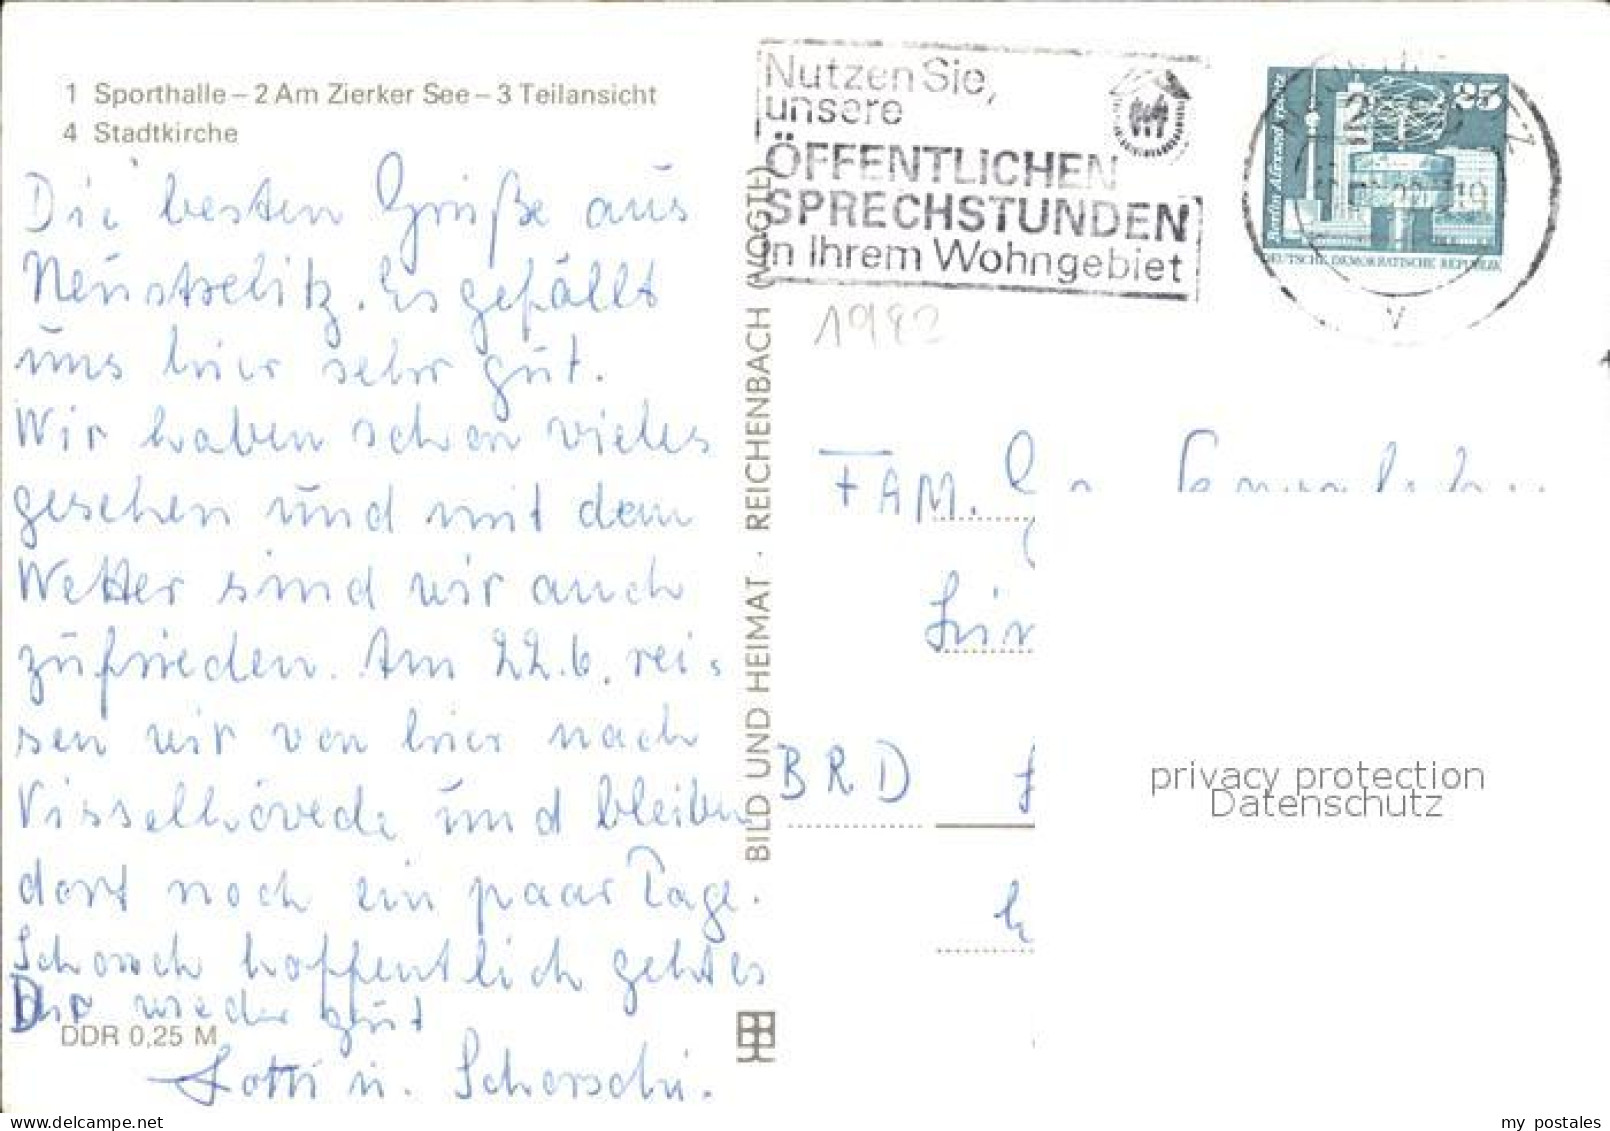 1 Sporthalle – 2 Am Zierker See – 3 Teilansicht
4 Stadtkirche
Die besten Grüße aus
Neustrelitz. Es gefällt
uns hier sehr gut.
Wir haben schon vieles
gesehen und mit dem
Wetter sind wir auch
zufrieden. Am 22.6. rei-
sen wir von hier nach
Visselhövede und bleiben
dort noch ein paar Tage.
Schorsch hoffentlich geht es
Dir wieder gut
DDR 0,25 M
Lotti u. Schorschi.
BILD UND HEIMAT · REICHENBACH (VOGTL)
Nutzen Sie,
unsere
ÖFFENTLICHEN
SPRECHSTUNDEN
in Ihrem Wohngebiet
25
Berlin, Alexanderplatz
DEUTSCHE DEMOKRATISCHE REPUBLIK
1982
FAM.
BRD
privacy protection
Datenschutz
delcampe.net
my_postales